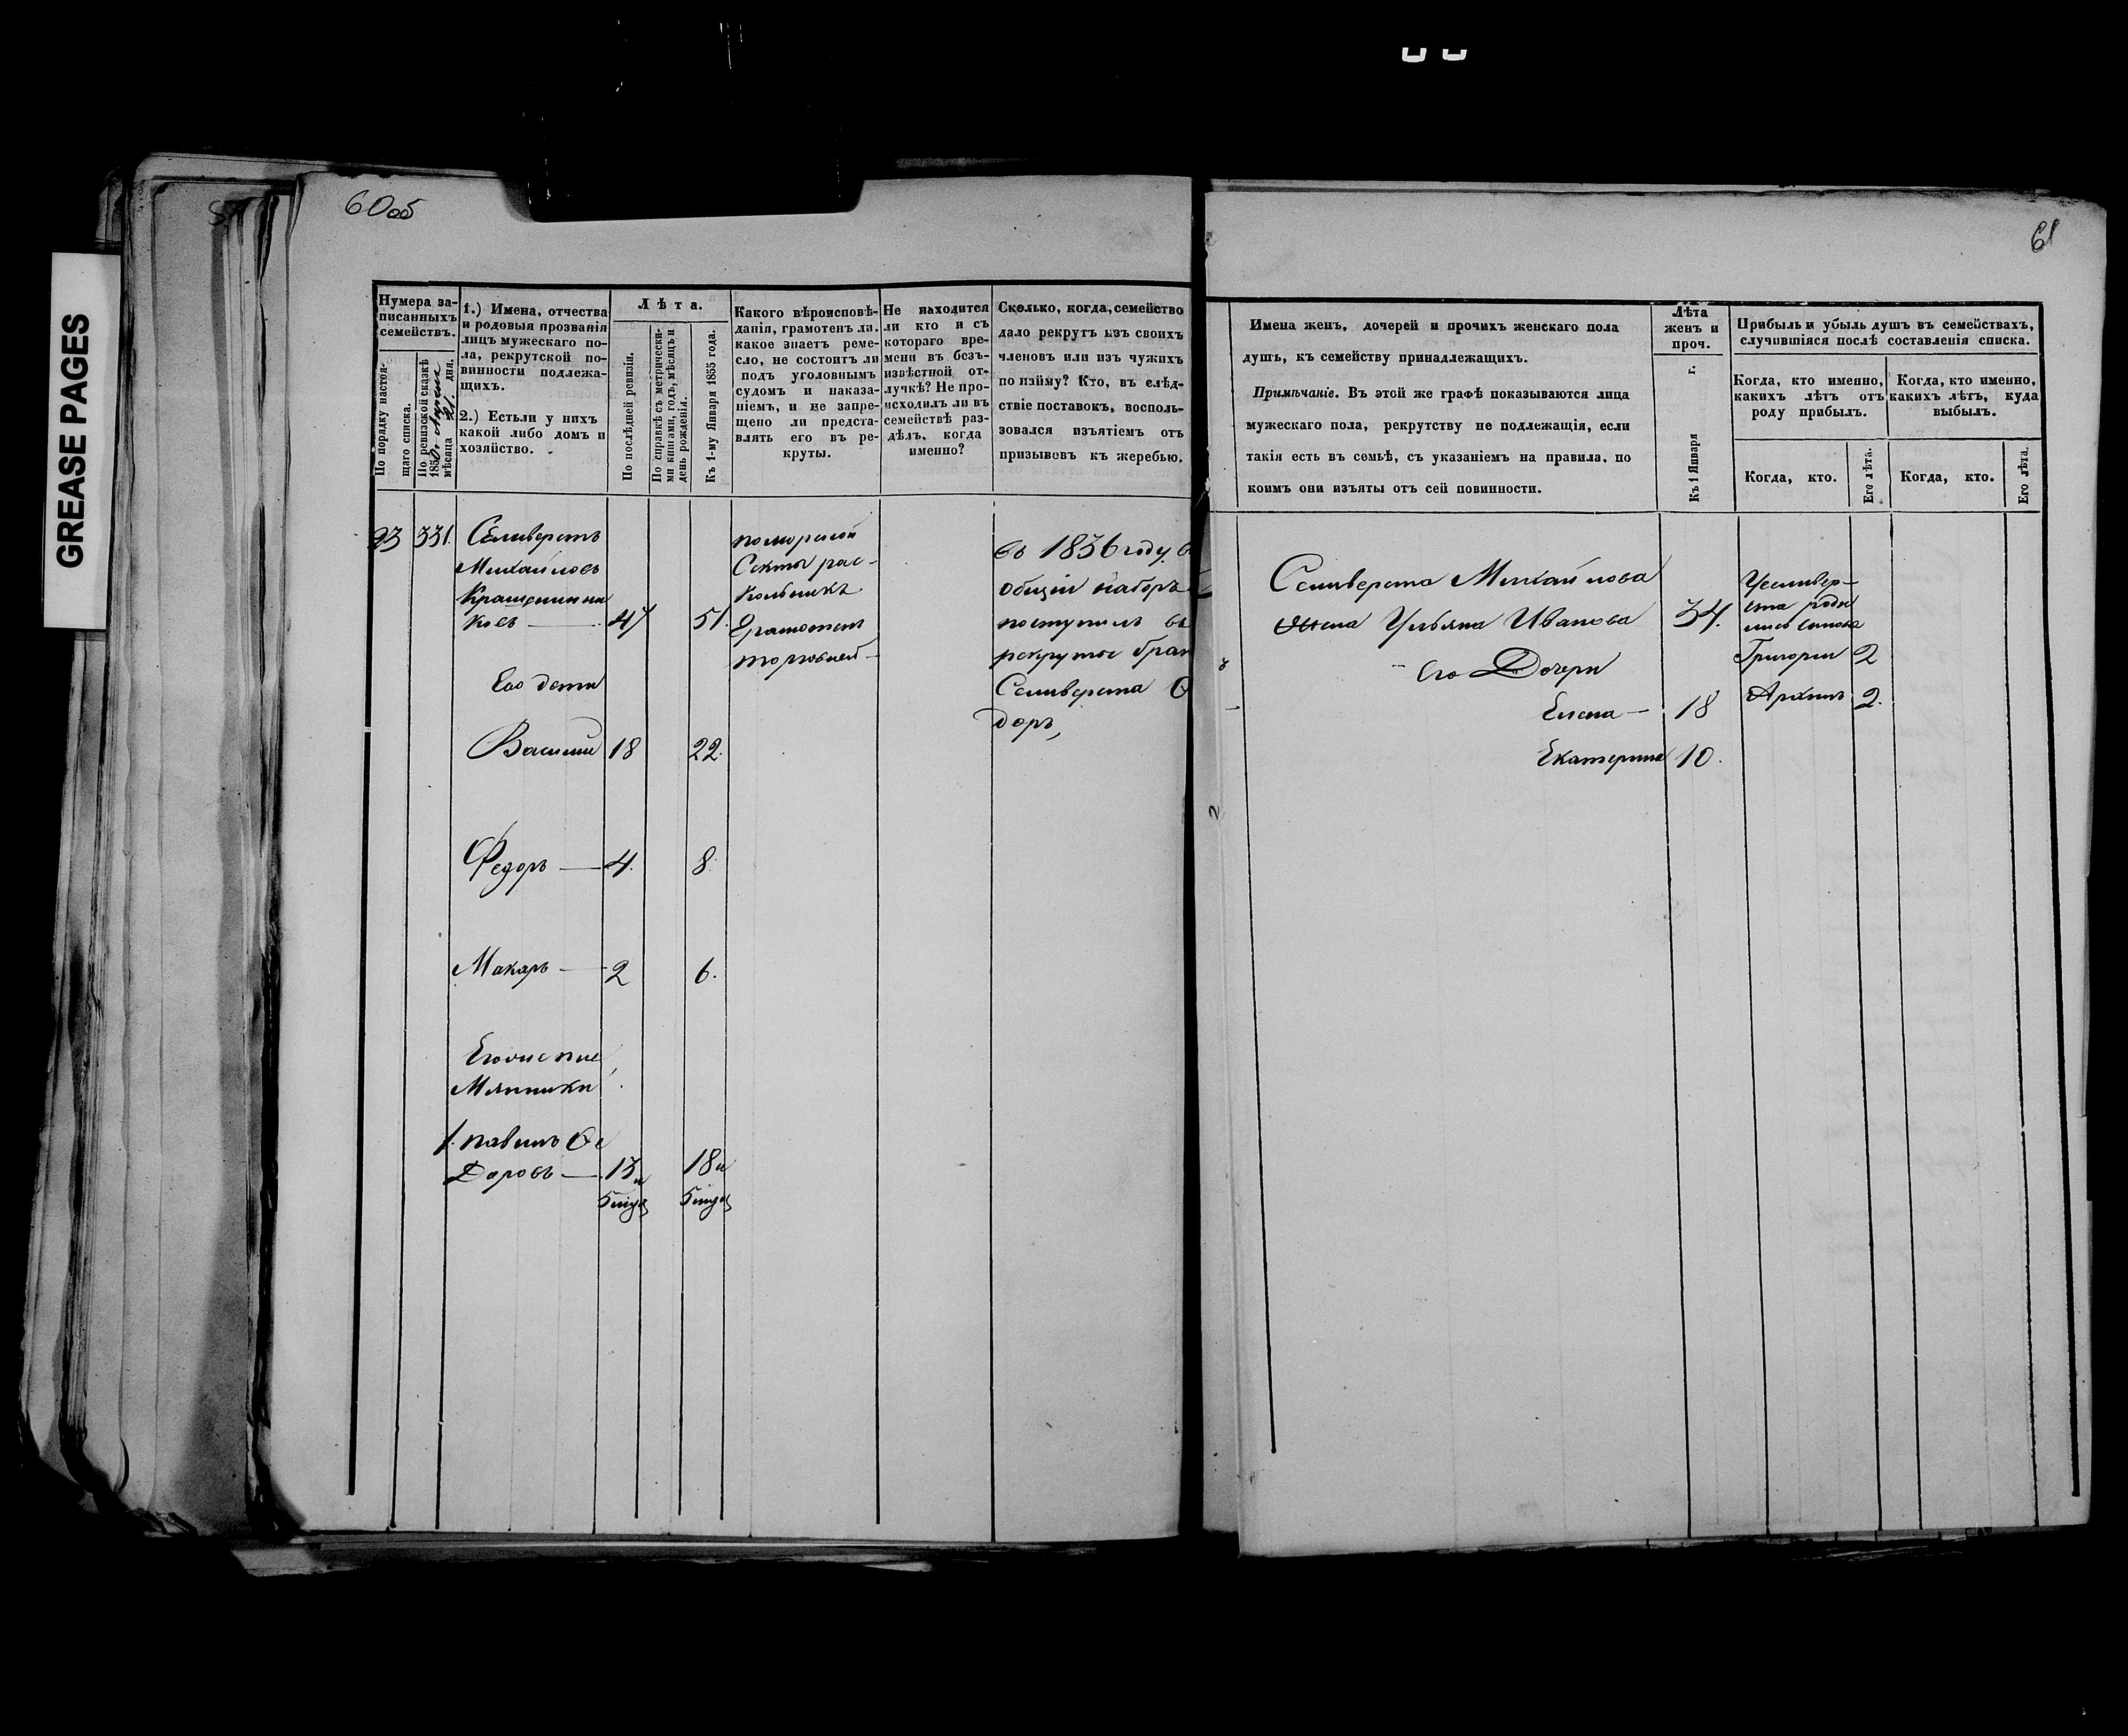 GREASE PAGES
60об
Нумера за-
писанныхъ
семействъ.
По порядку настоя-
щаго списка.
По ревизской сказкѣ
1850 мѣсяца 21. дня.
1.) Имена, отчества
и родовыя прозванія
лицъ мужескаго по-
ла, рекрутской по-
винности подлежа-
щихъ.
2.) Естьли у нихъ
какой либо домъ и
хозяйство.
Лѣта.
По послѣдней ревизіи.
По справкѣ съ метрически-
ми книгами, годъ, мѣсяцъ и
день рожденія.
Къ 1-му Января 1855 года.
Какого вѣроисповѣ-
данія, грамотенъ ли.
какое знаетъ реме-
сло, не состоитъ ли
подъ уголовнымъ
судомъ и наказа-
ніемъ, и не запре-
щено ли предста-
влять его въ ре-
круты.
Не находится
ли кто и съ
котораго вре-
мени въ безъ-
извѣстной от-
лучкѣ? Не про-
исходилъ ли въ
семействѣ раз-
дѣлъ, когда
именно?
Сколько, когда, семейство
дало рекрутъ изъ своихъ
членовъ или изъ чужихъ
по найму? Кто, въ слѣд-
ствіе поставокъ, восполь-
зовался изъятіемъ отъ
призывовъ къ жеребью.
23 331. Селиверстъ
Михайловъ
Кращенинни
ковъ 47 51.
Его дети
Василий 18 22.
Федоръ 4. 8.
Макаръ 2 6.
Его пле
Мянники
1. павилъ Фе
Доровъ 13 и 18 и
поморской
Секты рас-
кольникъ
Грамотенъ
торговлей
въ 1836 году в
общій наборъ
поступилъ въ
рекруты брат
Селиверста Ф
доръ,
61
Имена женъ, дочерей и прочихъ женскаго пола
душъ, къ семейству принадлежащихъ.
Примѣчаніе. Въ этой же графѣ показываются лица
мужескаго пола, рекрутству не подлежащія, если
такія есть въ семьѣ, съ указаніемъ на правила, по
коимъ они изъяты отъ сей повинности.
Лѣта
женъ и
проч.
Къ 1 Января г.
Прибыль и убыль душъ въ семействахъ,
случившіяся послѣ составленія списка.
Когда, кто именно,
какихъ лѣтъ отъ
роду прибылъ.
Когда, кто именно,
какихъ лѣтъ, куда
выбылъ.
Когда, кто.
Его лѣта.
Когда, кто.
Его лѣта.
Селиверста Михайлова
Жена Ульяна Иванова 34.
Его Дочери
Елена 18
Екатерина 10.
У селивер-
ста роди
лись сынова
Григорий 2
Архипъ 2.